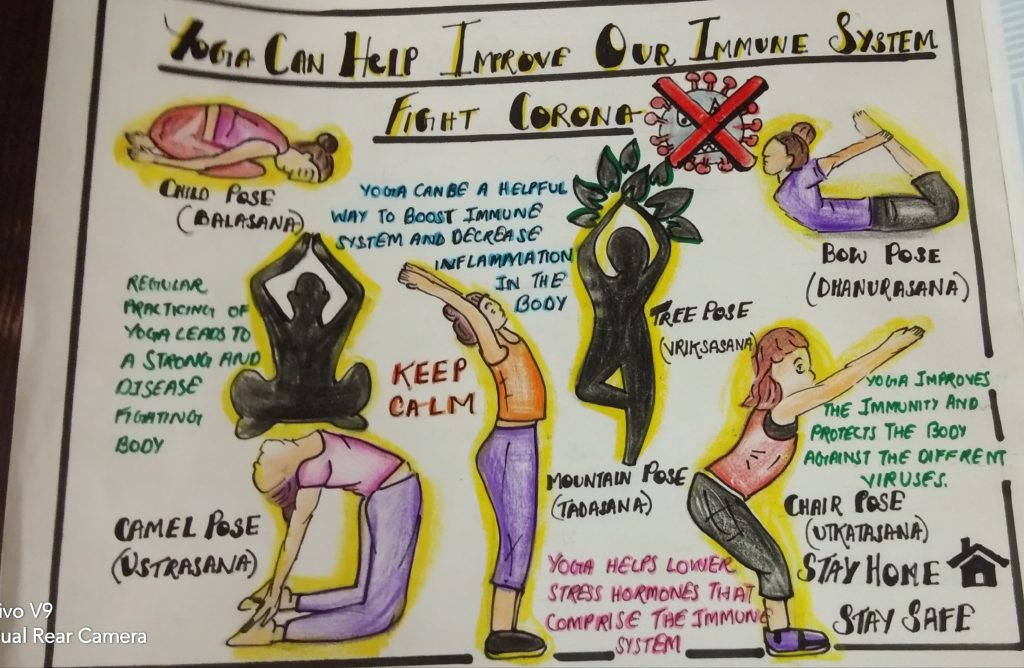 YOGA CAN HELP IMPROVE OUR IMMUNE SYSTEM
FIGHT CORONA
CHILD POSE
(BALASANA)
YOGA CAN BE A HELPFUL
WAY TO BOOST IMMUNE
SYSTEM AND DECREASE
INFLAMMATION
IN THE
BODY
BOW POSE
(DHANURASANA)
REGULAR
PRACTICING OF
YOGA LEADS TO
A STRONG AND
DISEASE
FIGHTING
BODY
KEEP
CALM
TREE POSE
(VRIKSASANA)
YOGA IMPROVES
THE IMMUNITY AND
PROTECTS THE BODY
AGAINST THE DIFFRENT
VIRUSES.
CAMEL POSE
(USTRASANA)
MOUNTAIN POSE
(TADASANA)
CHAIR POSE
(UTKATASANA)
YOGA HELPS LOWER
STRESS HORMONES THAT
COMPRISE THE IMMUNE
SYSTEM
STAY HOME
STAY SAFE
ivo V9
ual Rear Camera